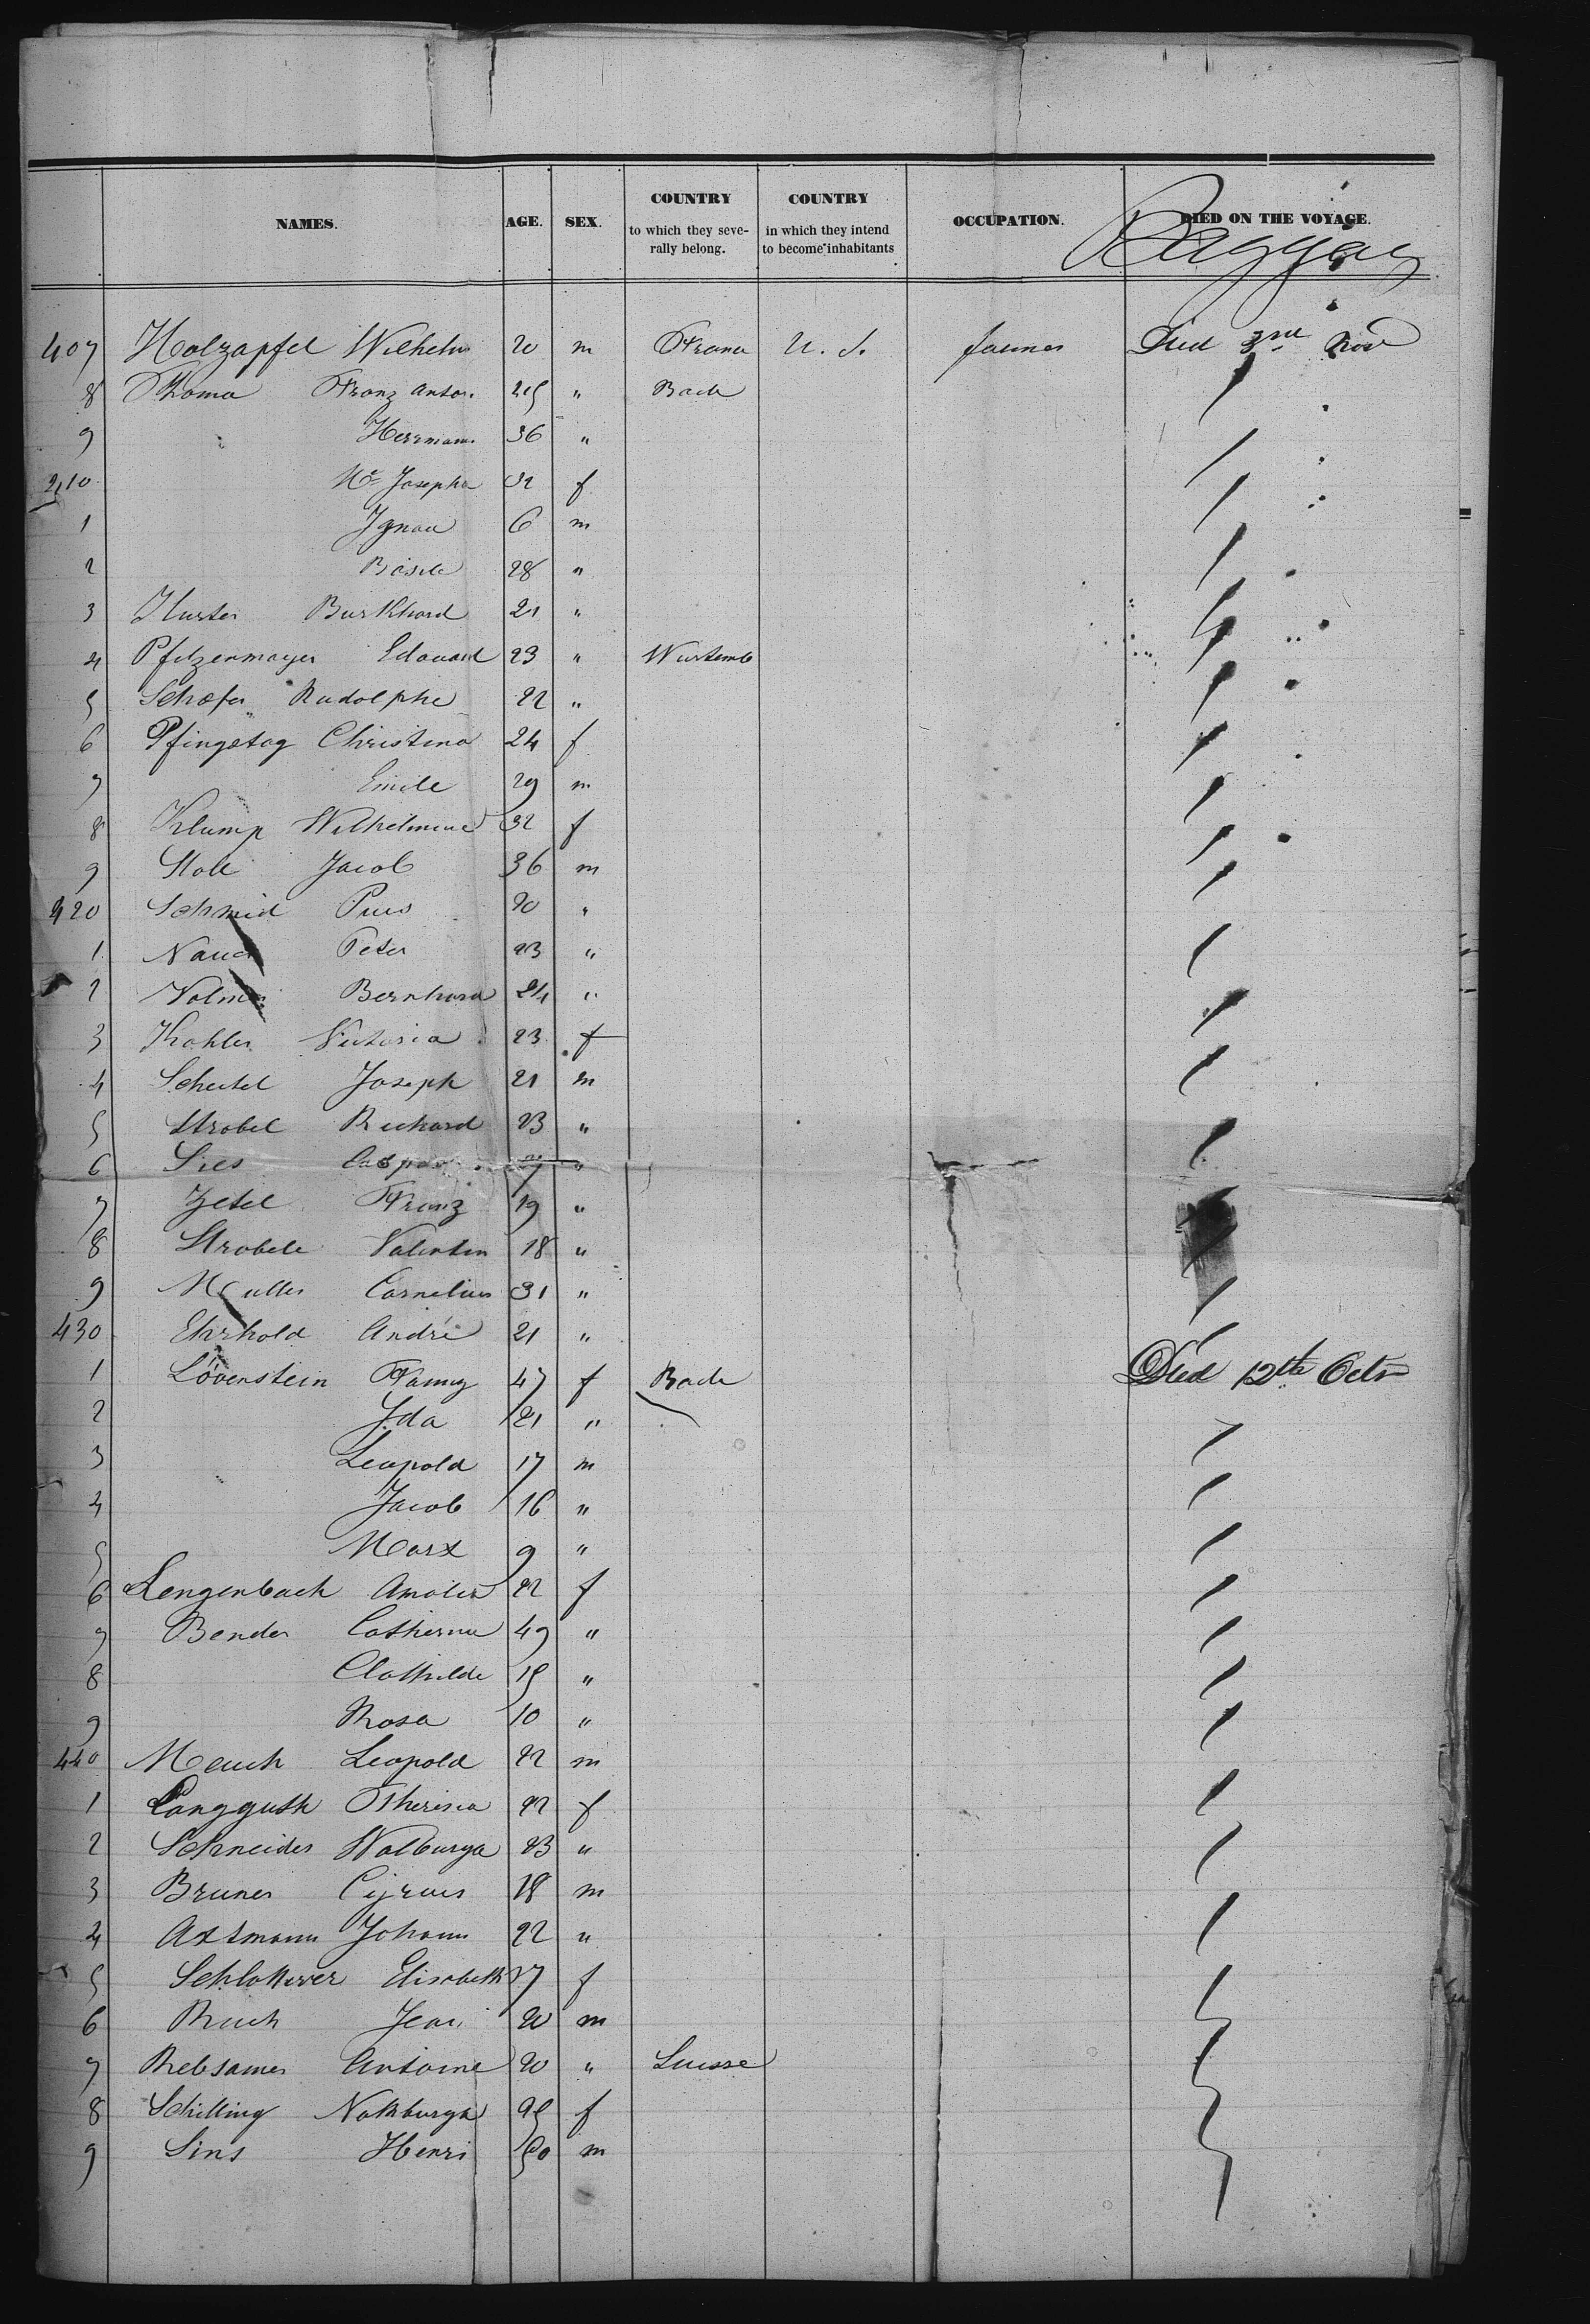 NAMES. AGE. SEX. COUNTRY to which they severally belong. COUNTRY in which they intend to become inhabitants OCCUPATION. DIED ON THE VOYAGE.
407 Holzapfel Wilhelm 20 m U. S. farmer Died 3rd Nov
8 Thoma Franz Anton 25 " Bade
9 Herrmann 36 "
410 Josepha 32 f
1 6 m
2 28 "
3 Burkhard 21 "
4 Pfitzenmayer Edouard 23 " Wurtemb
5 Schäfer Rudolphe 22 "
6 Pfingstag Christina 24 f
7 Emile 29 m
8 Klump Wilhelmine 32 f
9 Jacob 36 m
420 Schmid Pius 20 "
1 Peter 23 "
2 Bernhard 24 "
3 Kohler Victoria 23 f
4 Joseph 21 m
5 Strobel Richard 23 "
6 Caspar "
7 Franz 19 "
8 Strobele Valentin 18 "
9 Muller Cornelius 31 "
430 Ehrhold André 21 "
1 Lövenstein Fanny 47 f Bade Died 12th Octr
2 Ida 21 "
3 Leopold 17 m
4 Jacob 16 "
5 Marx 9 "
6 Lengenbach Amalia 22 f
7 Bender Catherine 49 "
8 Clothilde 15 "
9 Rosa 10 "
440 Mauch Leopold 22 m
1 Langguth Theresia 22 f
2 Schneider Walburga 23 "
3 Bruner Cyrus 18 m
4 Axtmann Johann 22 "
5 Elisabeth 27 f
6 Ruch Jean 20 m
7 Rebsamen Antoine 20 " Suisse
8 Schilling Nothburga 25 f
9 Sins Henri 50 m